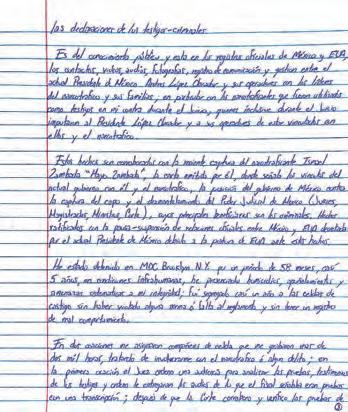 Las declaraciones de los testigos-criminales
Es del conocimiento público y está en los registros oficiales de México y EUA,
los contactos, videos, audios, fotografías, registro de comunicación y gestión entre el
actual Presidente de México Andrés López Obrador y sus operadores con los líderes
del narcotráfico y sus familias, en particular con los narcotraficantes que fueron utilizados
como testigos en mi contra durante el Juicio, quienes inclusive durante el Juicio
imputaron al Presidente López Obrador y a sus operadores de estar vinculados con
ellos y el narcotráfico.
Estos hechos son corroborados con la reciente captura del narcotraficante Ismael
Zambada "Mayo Zambada", la carta emitida por él, donde señala los vínculos del
actual gobierno con él y el narcotráfico, la posición del gobierno de México contra
la captura del capo y el desmantelamiento del Poder Judicial de México (Jueces,
Magistrados, Ministros, Corte), cuyos principales beneficiarios son los criminales. Hechos
ratificados con la pausa-suspensión de relaciones oficiales entre México y EUA decretada
por el actual Presidente de México debido a la postura de EUA ante estos hechos.
He estado detenido en MDC Brooklyn N.Y. por un período de 58 meses, casi
5 años, en condiciones infrahumanas, he presenciado homicidios, apuñalamientos y
amenazas sistemáticas a mi integridad; fui segregado casi un año a las celdas de
castigo sin haber violado alguna norma o falta al reglamento y sin tener un registro
de mal comportamiento.
En dos ocasiones me asignaron compañeros de celda que me grabaron más de
dos mil horas, tratando de involucrarme con el narcotráfico o algún delito; en
la primera ocasión el Juez ordenó una audiencia para analizar las pruebas, testimonios
de los testigos y ordenó le entregaran los audios de lo que el fiscal señalaba eran pruebas
con una transcripción; después de que la Corte corroboró y verificó las pruebas de